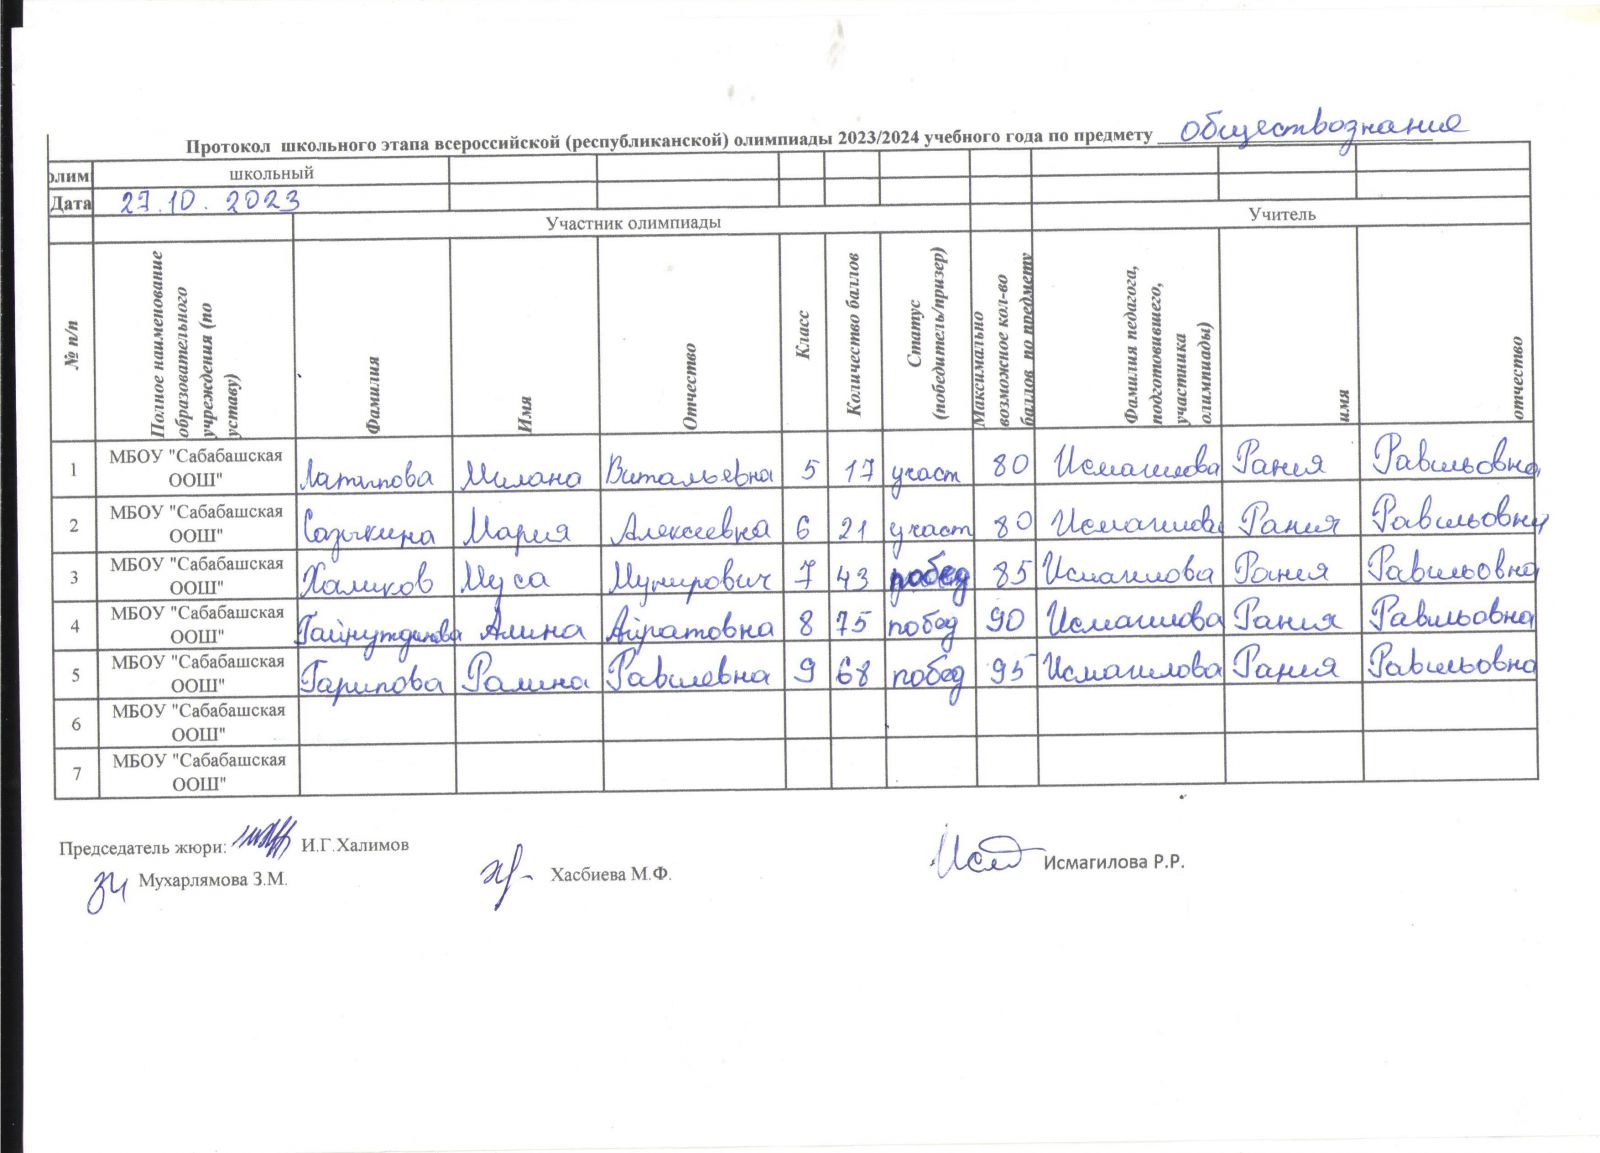 Протокол школьного этапа всероссийской (республиканской) олимпиады 2023/2024 учебного года по предмету обществознание
олим школьный
Дата 27.10.2023
Участник олимпиады Учитель
№ п/п Полное наименование образовательного учреждения (по уставу) Фамилия Имя Отчество Класс Количество баллов Статус (победитель/призер) Максимально возможное кол-во баллов по предмету Фамилия педагога, подготовившего, участника олимпиады) имя отчество
1 МБОУ "Сабабашская ООШ" Латыпова Милана Витальевна 5 17 участ 80 Исмагилова Рания Равильовна
2 МБОУ "Сабабашская ООШ" Садыкина Мария Алексеевна 6 21 участ 80 Исмагилова Рания Равильовна
3 МБОУ "Сабабашская ООШ" Халиков Муса Мунирович 7 43 побед 85 Исмагилова Рания Равильовна
4 МБОУ "Сабабашская ООШ" Гайнутдинова Алина Айратовна 8 75 побед 90 Исмагилова Рания Равильовна
5 МБОУ "Сабабашская ООШ" Гарипова Ралина Равилевна 9 68 побед 95 Исмагилова Рания Равильовна
6 МБОУ "Сабабашская ООШ"
7 МБОУ "Сабабашская ООШ"
Председатель жюри: И.Г.Халимов
Мухарлямова З.М. Хасбиева М.Ф. Исмагилова Р.Р.